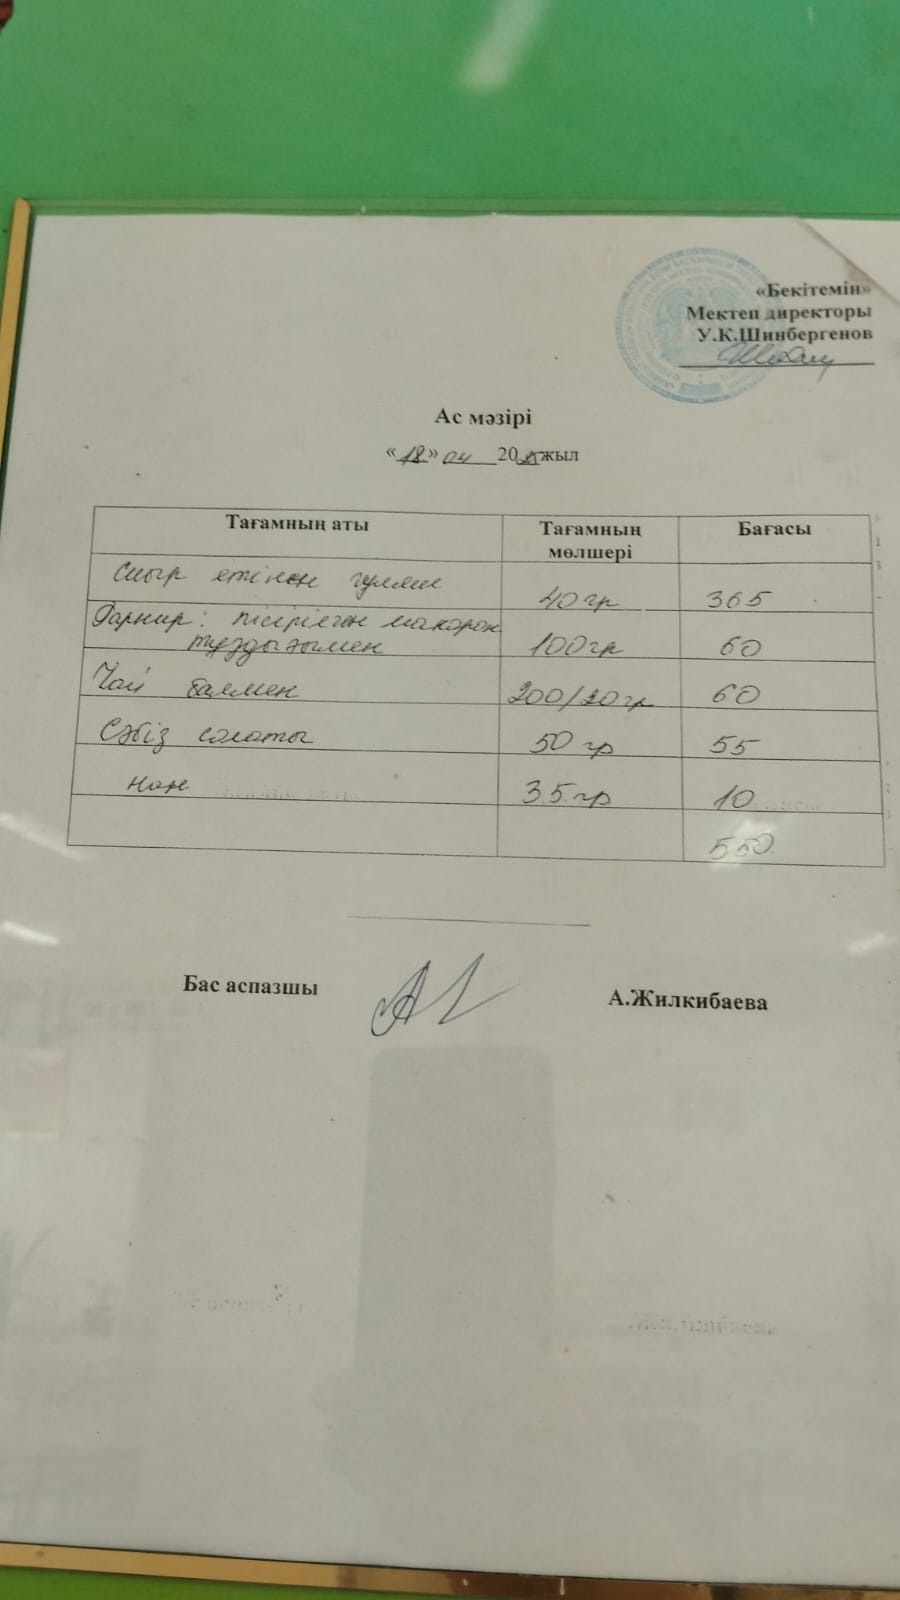 «Бекітемін»
Мектеп директоры
У.К.Шинбергенов
Ас мәзірі
«18» 04 2025 жыл
Тағамның аты Тағамның мөлшері Бағасы
Сиыр етінен гуляш 40 гр 365
Гарнир: пісірілген макарон
тұздығымен 100 гр 60
Чай балмен 200/20 гр 60
Сәбіз салаты 50 гр 55
нан 35 гр 10
550
Бас аспазшы А.Жилкибаева